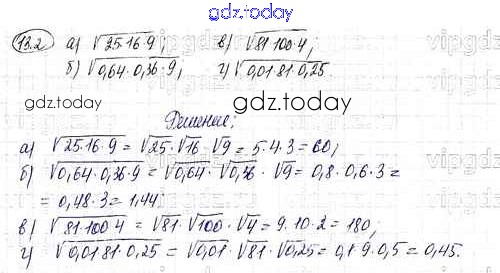 gdz.today
13.2 а) √25·16·9; в) √81·100·4;
б) √0,64·0,36·9; г) √0,01·81·0,25
gdz.today
gdz.today
Решение:
а) √25·16·9 = √25·√16·√9 = 5·4·3 = 60;
б) √0,64·0,36·9 = √0,64·√0,36·√9 = 0,8·0,6·3 =
= 0,48·3 = 1,44.
в) √81·100·4 = √81·√100·√4 = 9·10·2 = 180;
г) √0,01·81·0,25 = √0,01·√81·√0,25 = 0,1·9·0,5 = 0,45.